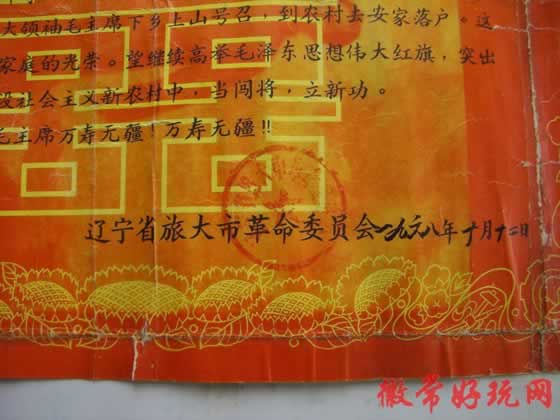 大领袖毛主席下乡上山号召，到农村去安家落户。这
家庭的光荣。望继续高举毛泽东思想伟大红旗，突出
设社会主义新农村中，当闯将，立新功。
毛主席万寿无疆！万寿无疆！！
辽宁省旅大市革命委员会一九六八年十月十二日
徽常好玩网